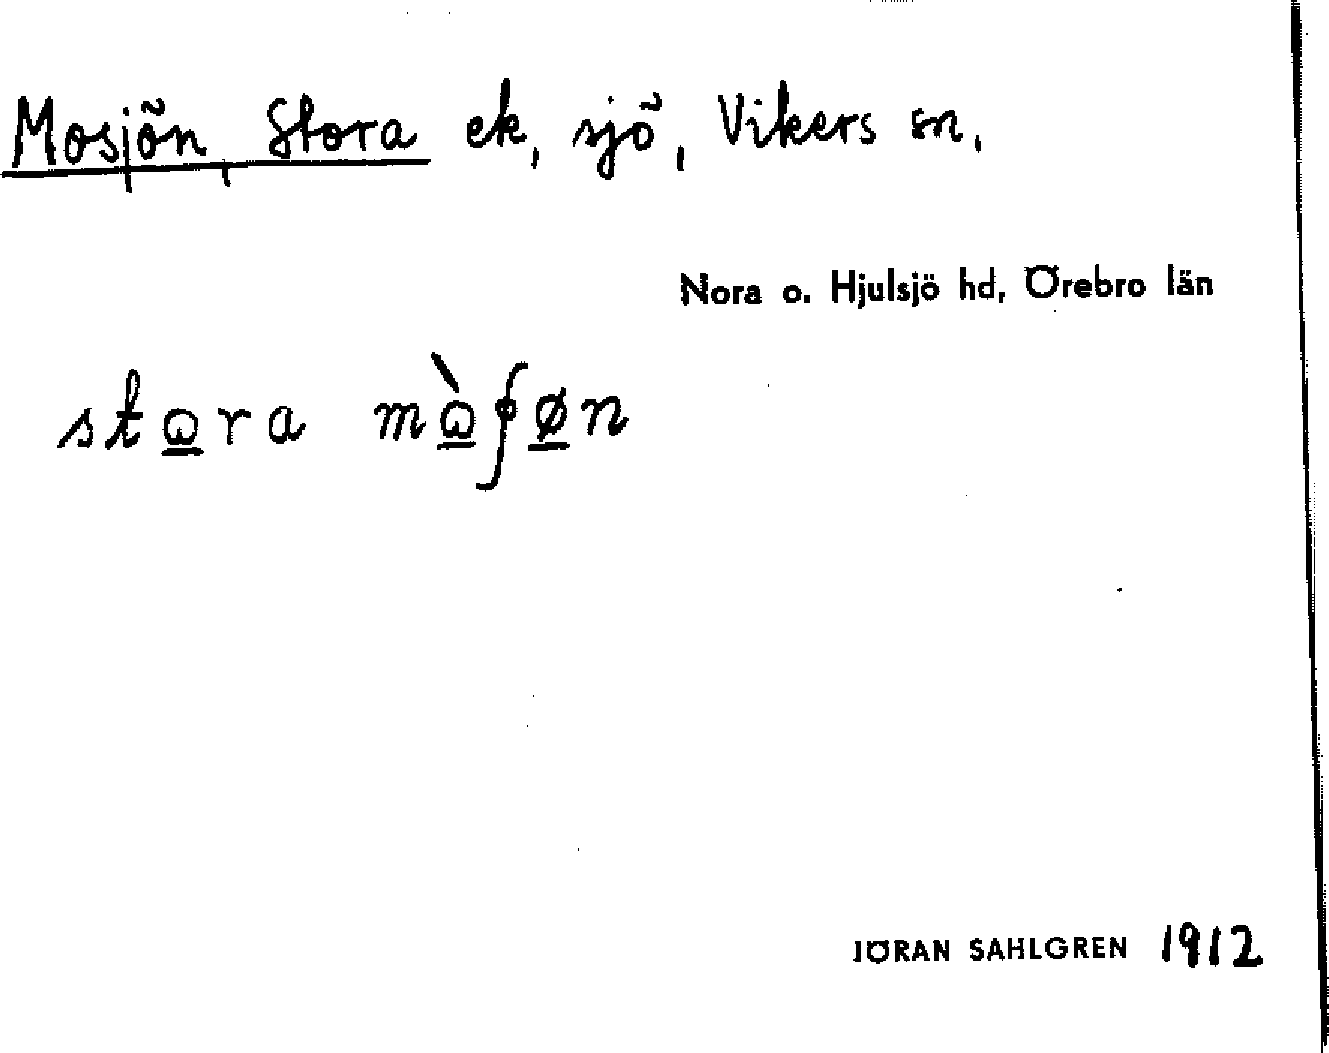 Mosjön, Stora ek, sjö, Vikers sn.
Nora o. Hjulsjö hd, Örebro län
stora
JÖRAN SAHLGREN 1912